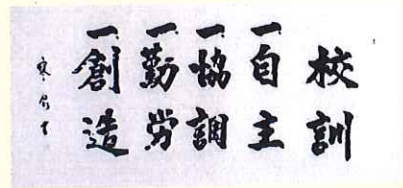 校訓
一自主
一協調
一勤労
一創造